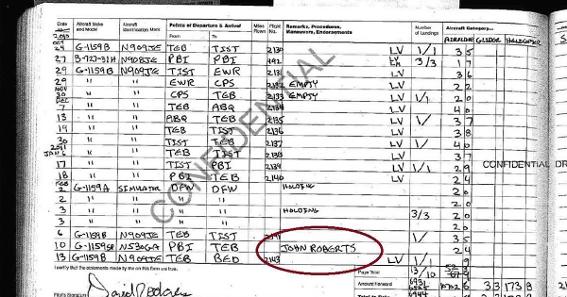 Date Aircraft Make and Model Aircraft Identification Mark Points of Departure & Arrival Miles Flown Flight No. Remarks, Procedures, Maneuvers, Endorsements Number of Landings Aircraft Category
From To AIRPLANE GLIDER HELICOPTER
G-1159B N909JE TEB TIST 2130 LV 1/1 3 5
27 B-727-31H N908JE PBI PBI 3/3 1 7
29 G-1159B N909JE TIST EWR LV 3 6
29 " " EWR CPS 2132 EMPTY LV 2 2
30 " " CPS TEB 2133 EMPTY LV 1/1 2 0
7 " " TEB ABQ 2134 LV 4 0
13 " " ABQ TEB 2135 LV 3 7
19 " " TEB TIST 2136 LV 3 8
30 " " TIST TEB 2137 LV 1/1 4 0
" " TEB TIST 2138 LV 3 7
17 " " TIST PBI 2139 LV 1/1 2 9
18 " " PBI TEB 2140 LV 2 4
2 G-1159A SIMULATOR DFW DFW HOLDING 2 0
2 " " " " 2 0
3 " " " " HOLDING 2 0
3 " " " " 3/3 2 0
6 G-1159B N909JE TEB TIST 1/ 3 5
10 N530GA PBI TEB JOHN ROBERTS 2 4
13 G-1159B N909JE TEB BED 2143 LV 1/1 9
I certify that the statements made by me on this form are true.
Page Total
Amount Forward
CONFIDENTIAL
CONFIDENTIAL